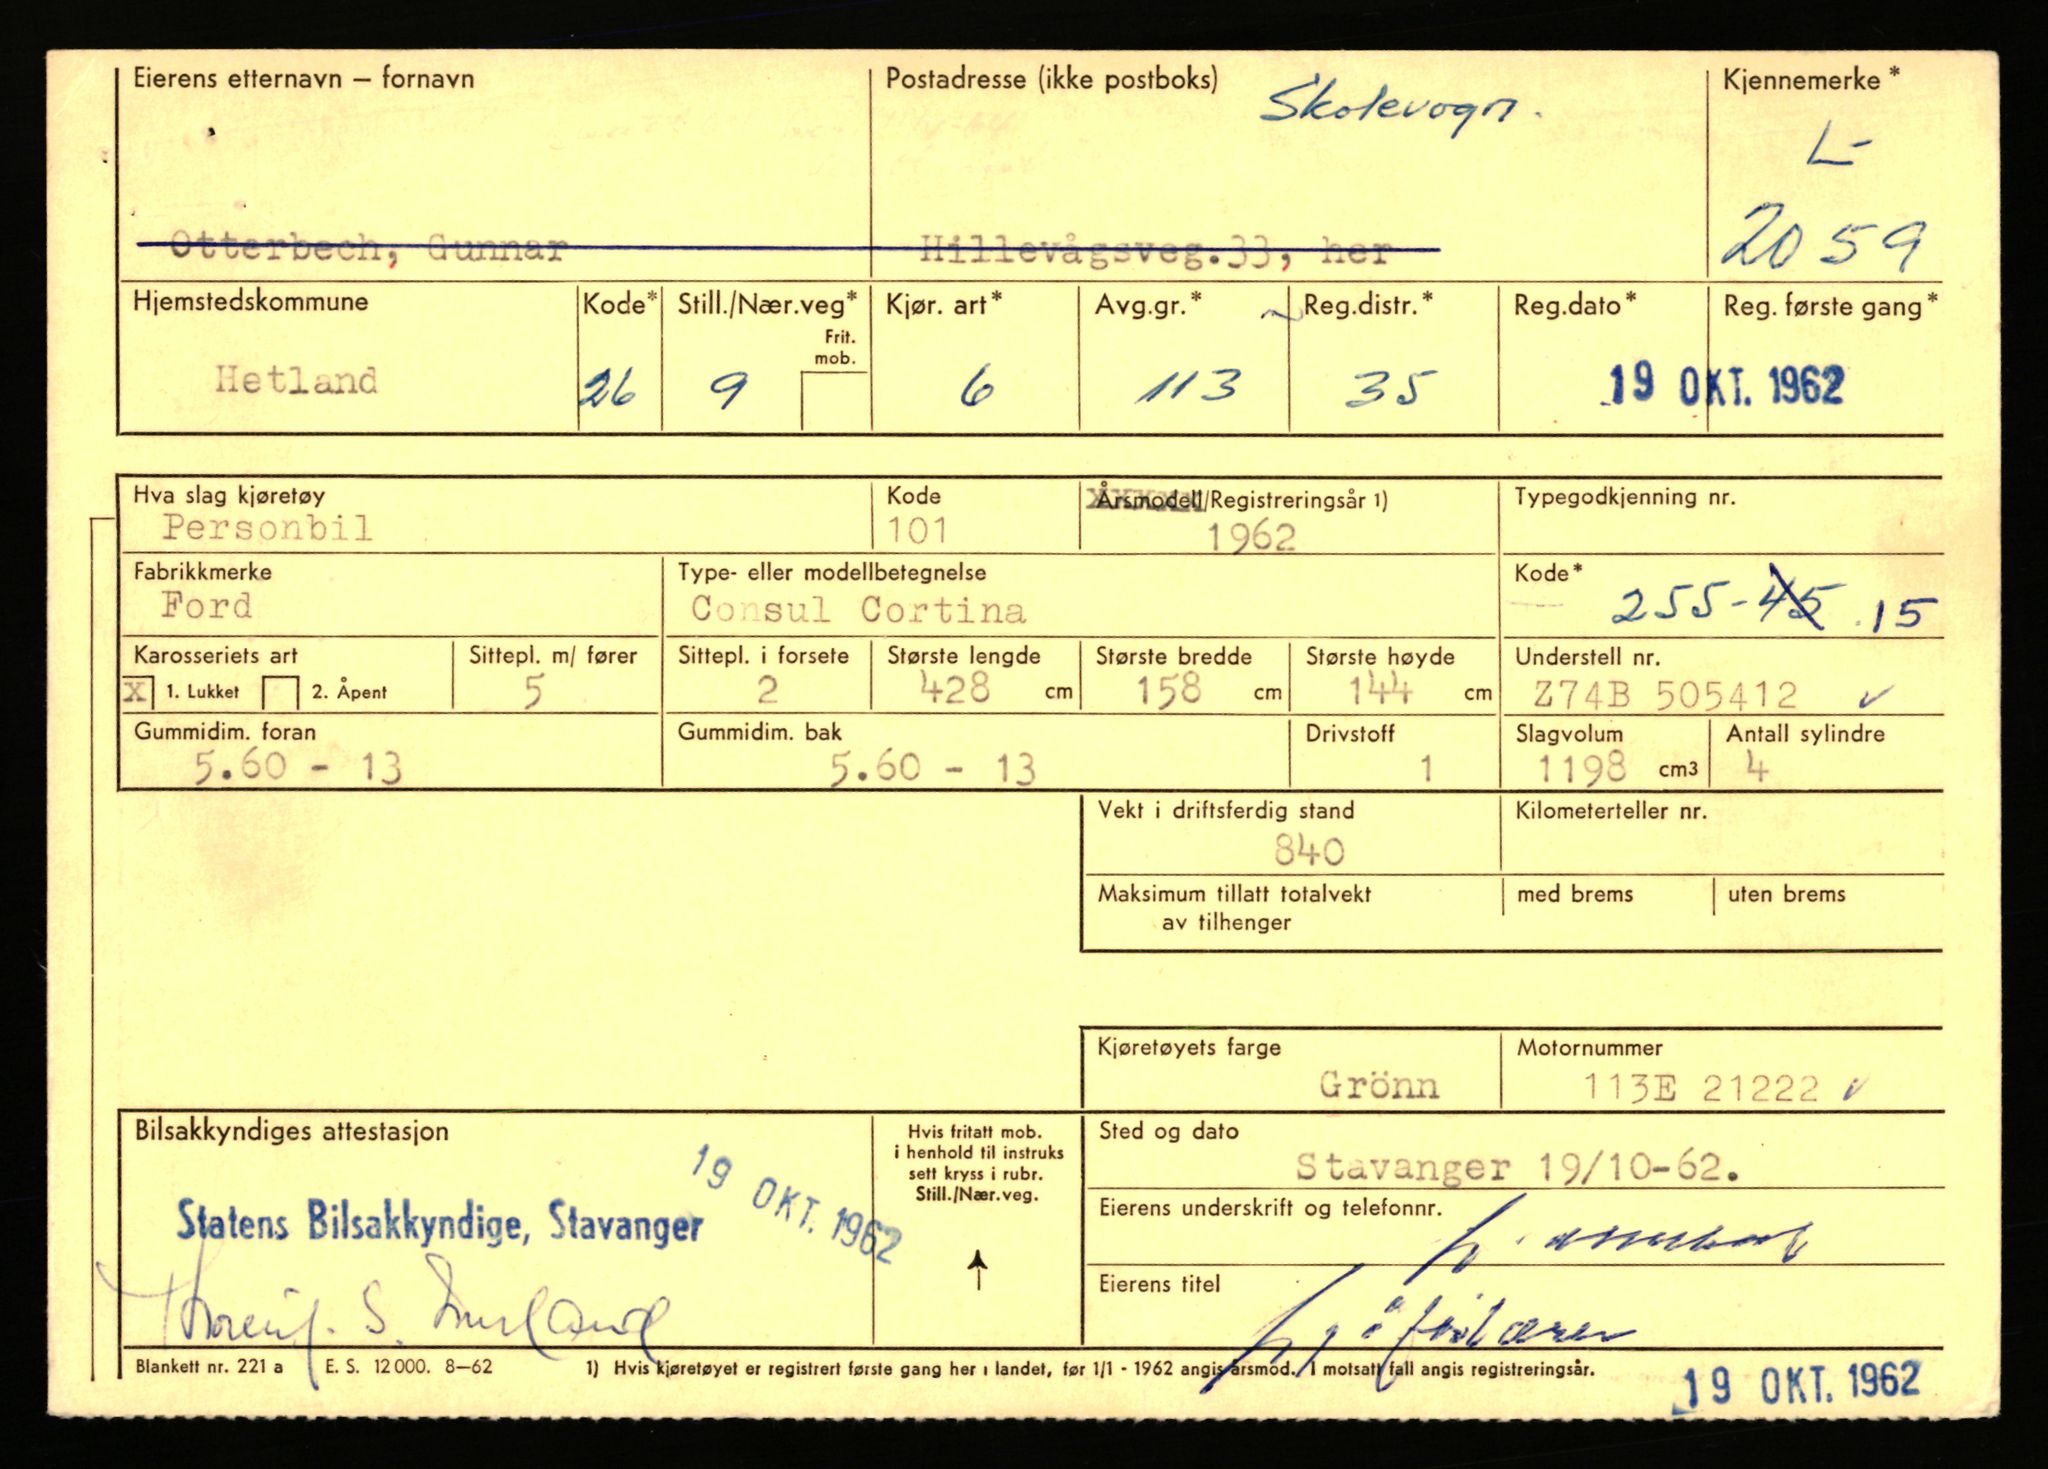 Eierens etternavn – fornavn Postadresse (ikke postboks) Kjennemerke*
Skolevogn.
L-
2059
Otterbech, Gunnar Hillevågsveg.33, her
Hjemstedskommune Kode* Still./Nær.veg* Kjør. art* Avg.gr.* Reg.distr.* Reg.dato* Reg. første gang*
Frit. mob.
Hetland 26 9 6 113 35 19 OKT. 1962
Hva slag kjøretøy Kode Årsmodell/Registreringsår 1) Typegodkjenning nr.
Personbil 101 1962
Fabrikkmerke Type- eller modellbetegnelse Kode*
Ford Consul Cortina 255-45 .15
Karosseriets art Sittepl. m/ fører Sittepl. i forsete Største lengde Største bredde Største høyde Understell nr.
X 1. Lukket 2. Åpent 5 2 428 cm 158 cm 144 cm Z74B 505412 ✓
Gummidim. foran Gummidim. bak Drivstoff Slagvolum Antall sylindre
5.60 - 13 5.60 - 13 1 1198 cm3 4
Vekt i driftsferdig stand Kilometerteller nr.
840
Maksimum tillatt totalvekt med brems uten brems
av tilhenger
Kjøretøyets farge Motornummer
Grönn 113E 21222 ✓
Bilsakkyndiges attestasjon Hvis fritatt mob. Sted og dato
i henhold til instruks
sett kryss i rubr.
Still./Nær.veg.
19 OKT. 1962 Stavanger 19/10-62.
Statens Bilsakkyndige, Stavanger Eierens underskrift og telefonnr.
Eierens titel
S.
Blankett nr. 221 a E. S. 12000. 8–62 1) Hvis kjøretøyet er registrert første gang her i landet, før 1/1 - 1962 angis årsmod. I motsatt fall angis registreringsår.
19 OKT. 1962